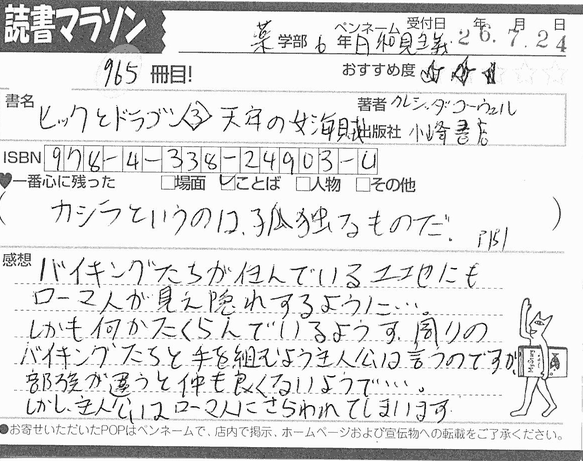 読書マラソン
薬学部 6年 ペンネーム 月和見主義 受付日 26年7月24日
965 冊目! おすすめ度 ☆☆☆☆☆
書名 ヒックとドラゴン③ 天牢の女海賊
著者 カレシーダ・コーウェル
出版社 小峰書店
ISBN 978-4-338-24903-
♥一番心に残った □場面 ☑ことば □人物 □その他
(カシラというのは、孤独なものだ。 P151)
感想 バイキングたちが住んでいる土地にも
ローマ人が見え隠れするように…。
しかも何かたくらんでいるようす、周りの
バイキングたちと手を組むよう主人公は言うのですが
部族が違うと仲も良くないようで…。
しかし、主人公はローマ人にさらわれてしまいます
●お寄せいただいたPOPはペンネームで、店内で掲示、ホームページおよび宣伝物への転載をご了承ください。